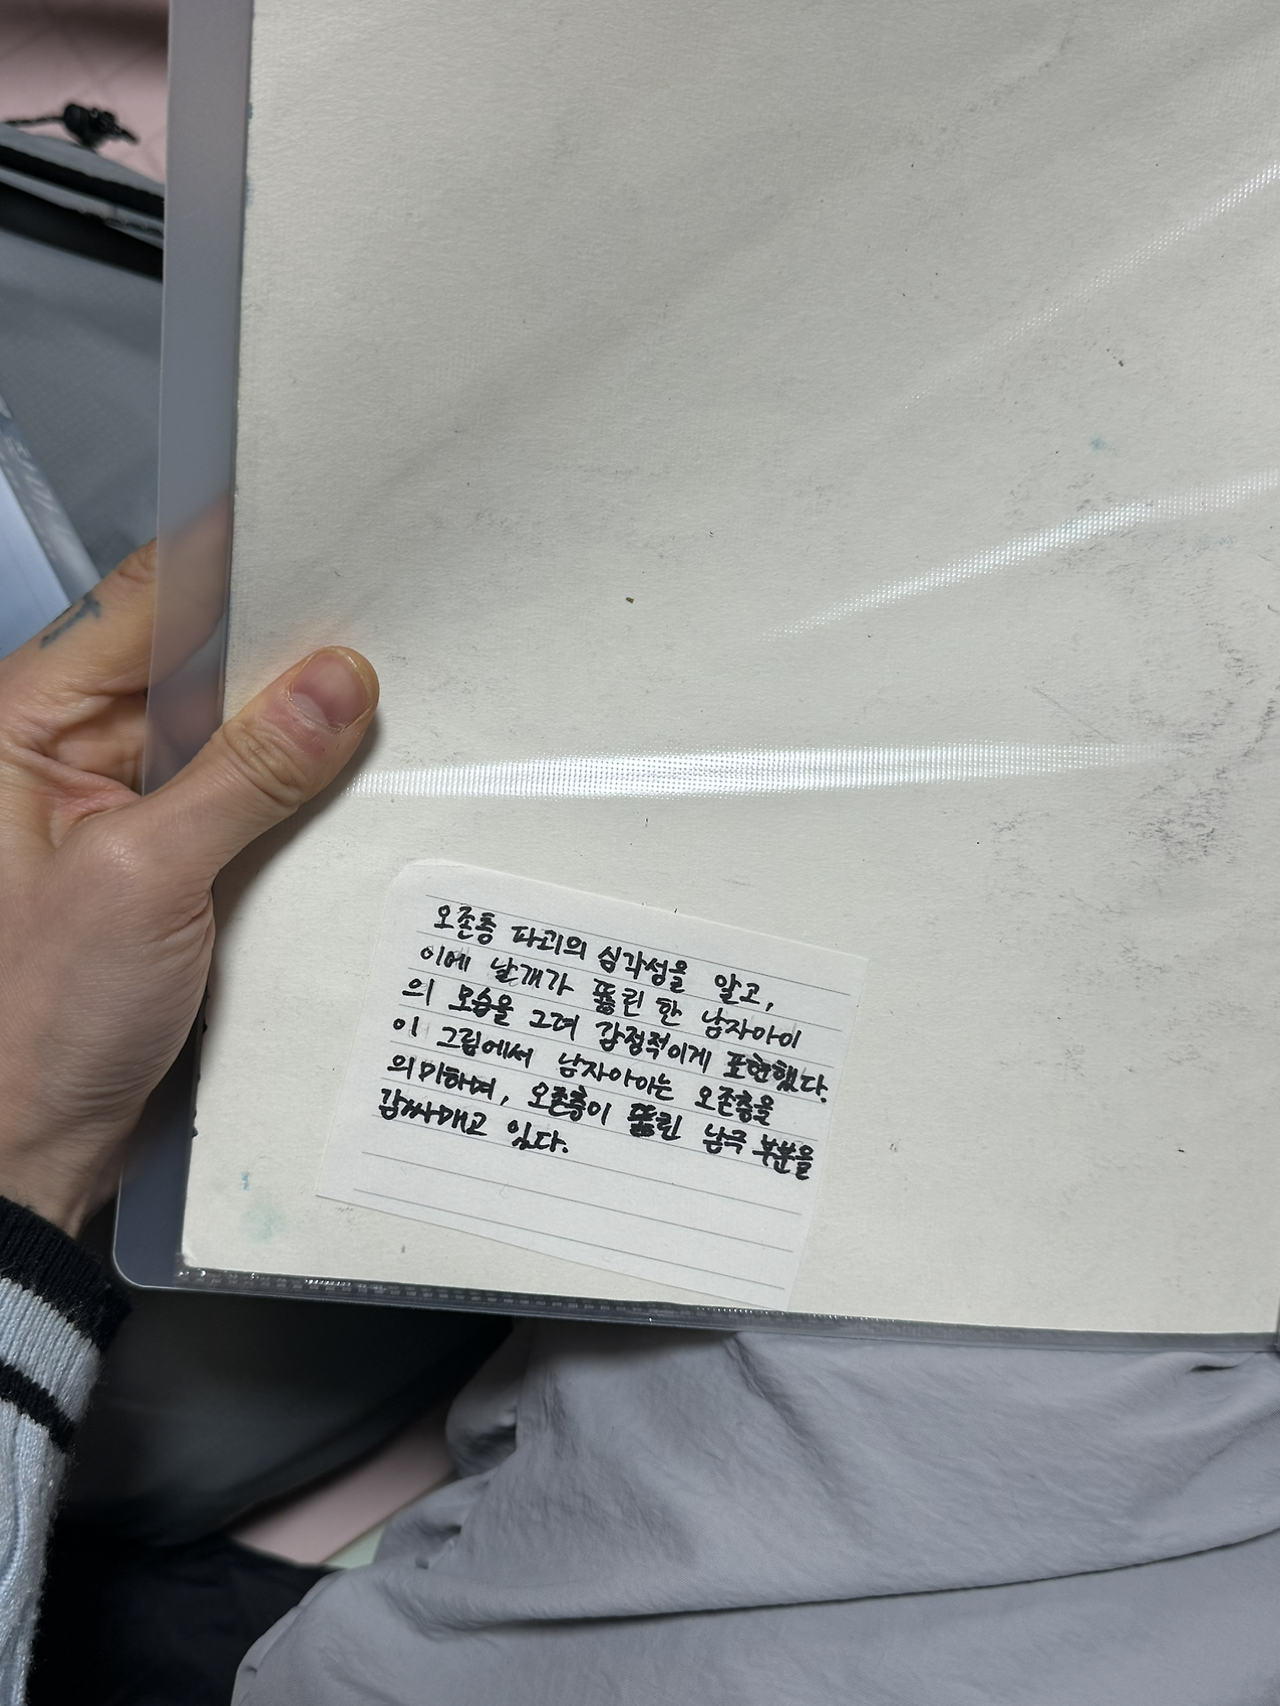 오존층 파괴의 심각성을 알고,
이에 날개가 뚫린 한 남자아이
의 모습을 그려 감정적이게 표현했다.
이 그림에서 남자아이는 오존층을
의미하며, 오존층이 뚫린 남극 부분을
감싸매고 있다.